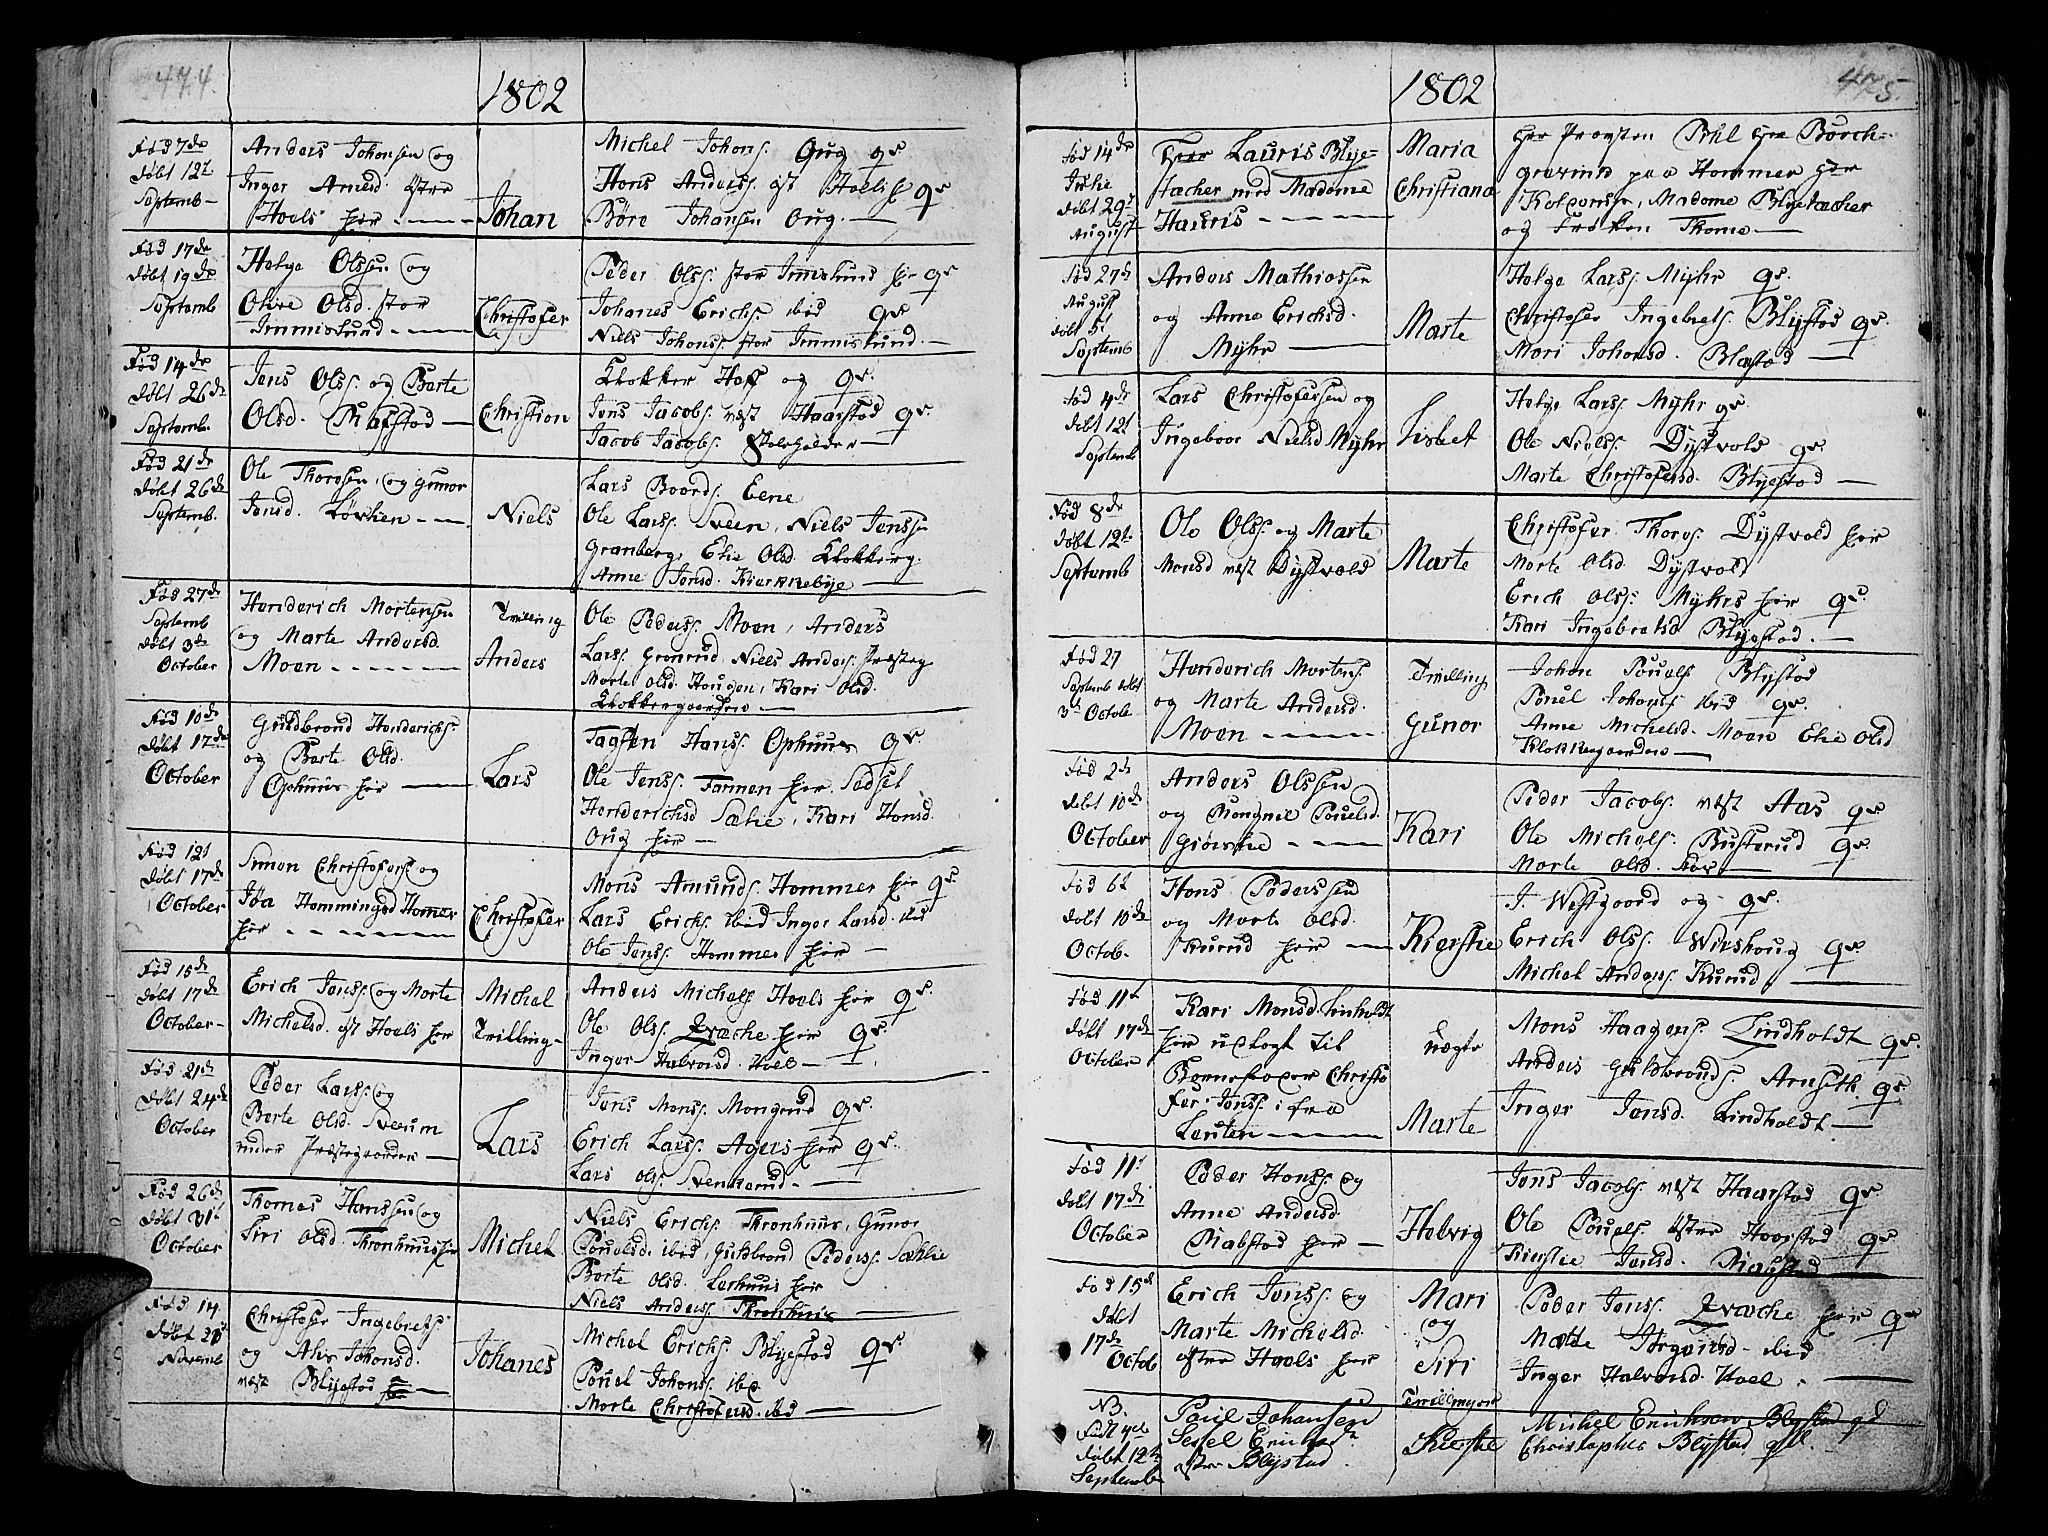 474.
1802
Fød 7de
døbt 12t
Septemb-
Anders Johansen og
Inger Amesd. Østre
Hoels her
Johan
Michel Johans. Oug gs.
Hans Anders. øst Hoels h gs
Børe Johansen Oug.
Fød 17de
døbt 19de
Septemb
Helge Olssen og
Olive Olsd. stor
Immislund
Christofer
Peder Olss. stor Immislund her gs
Johanes Erichs. ibid gs
Niels Johans. stor Immislund.
Fød 14de
døbt 26de
Septemb.
Jens Olss. og Berte
Olsd.
Christian
Klokker Hoff og gs.
Jens Jacobs. vest Haarstad gs.
Jacob Jacobs. Skoleholder
Fød 21de
døbt 26de
Septemb.
Ole Thorssen, og Gunor
Jensd. Løvlien
Niels
Lars Boords. Eene
Ole Larss. Sveen, Niels Jenss.
Granberg, Elie Olsd. Klokkerg.
Anne Jensd. Kierkkebye
Fød 27de
Septemb
døbt 3de
October
Henderich Mortensen
og Marte Andersd.
Moen
Tvilling
Anders
Ole Peders. Moen, Anders
Larss. Grønrud, Niels Anders. Presteg
Morte Olsd. Hougen, Kari Olsd.
Klokkergaarden
Fød 10de
døbt 17de
October
Guldbrand Henderichs.
og Berte Olsd.
Ophuus her
Lars
Tagsten Hanss. Ophuus gs.
Ole Jenss. Farmen her. Sedsel
Henderichsd Sætie, Kari Hansd.
Oug her
Fød 12t
døbt 17de
October
Simon Christofers. og
Hemmingsd Homer
her
Christofer
Mons Amunds. Hommer her gs.
Lars Erichs. ibid Inger Larsd. ibid
Ole Jenss. Hommer her
Fød 15de
døbt 17de
October
Erich Jenss. og Morte
Michelsd. øst Hoels her
Michel
Tvilling
Anders Michels. Hoels her gs.
Ole Olss. Kræche her gs.
Inger Halvorsd. Hoel
Fød 21de
døbt 24de
October
Peder Larss. og
Berte Olsd. Sverum
under Prestegaarden
Lars
Jens Mons. Mongrud gs.
Erich Larss. Agers her gs.
Lars Olss. Svenkerud
Fød 26de
døbt 31t
October
Thomas Hanssen og
Siri Olsd. Thronhuus her
Michel
Niels Erichs. Thronhuus, Gunor
Pouelsd. ibid, Guldbrand Peders. Sæhlie
Berte Olsd. Lerhuus her
Niels Anderss. Thronhuus
Fød 14.
døbt 21t
Novemb
Christofer Ingebrets.
og Ahs Johansd.
vest Blijestad
Johanes
Michel Erichs. Blijestad gs.
Pouel Johans. ibid
Morte Christofersd. ibid
475.
1802
Fød 14de
Julie
døbt 29t
August
Herr Lauris Blye-
tæcher med Madame
Hauris
Maria
Christiana
Hr Provsten Bul Hr Borch-
grevink paa Hommer
Madame Blyetæcher
og Frøken Thome
Fød 27de
August
døbt 5t
Septemb
Anders Mathiessen
og Anne Erichsd.
Myhr
Marte
Helge Larss. Myhr gs.
Christofer Ingebrets. Blijstad gs.
Mari Johansd. Blijstad
Fød 4de
døbt 12t
Septemb
Lars Christofersen og
Ingeboer Nielsd Myhr
Lisbet
Helge Larss. Myhr gs.
Ole Nielss. Dystvold gs.
Marte Christofersd. Blijestad
Fød 8de
døbt 12t
Septemb
Ole Olss. og Marte
Monsd vest Dystvold
Marte
Christofer Thors. Dystvold her
Morte Olsd. Dystvold
Erich Olss. Myhrs her gs.
Kari Ingebretsd Blijestad.
Fød 27
Septemb døbt
3de Octobe
Henderich Mortens.
og Marte Andersd.
Moen
Tvilling
Gunor
Johan Pouels. Blijstad
Pouel Johans. ibid gs.
Anne Michelsd. Moen Elie Olsd
Klokkergaarden
Fød 2de
døbt 10de
October
Anders Olssen
og Rongnel Pouelsd.
Giørslie
Kari
Peder Jacobs. vest Aas gs
Ole Michels. Busterud gs.
Morte Olsd. Aas
Fød 6t
døbt 10de
Octob.
Hans Pederssen
og Morte Olsd.
Kurud her
Kierstie
J. Westgaard og gs.
Erich Olss. Wirshoug gs.
Michel Anders. Kurud
Fød 11t
døbt 17de
October
Kari Monsd. Linholdt
her udlagt til
Barnefader Christo
fer Jenss. ifra
Leuten
Uægte
Marte
Mons Haagens. Lindholdt gs.
Anders Guldbrands. Arneth gs
Inger Jensd. Lindholdt
Fød 11t
døbt 17de
October
Peder Hanss. og
Anne Andersd.
Riabstad her
Helvig
Jens Jacobs. vest Haarstad gs
Ole Pouels. østre Haarstad gs.
Kirstie Jensd. Riabstad
Fød 15de
døbt
17de
Octob
Erich Jenss. og
Marte Michelsd.
østre Hoels her
Mari
og
Siri
Peder Jenss. Kræche her gs
ibid
Inger Halvorsd. Hoel.
NB.
Født 4de
døbt 12te
September
Paul Johansen
Sessel Erichsd.
østre Blystad.
Kierstie
Michel Erichsen Blystad gd
Christopher Blystad gd.